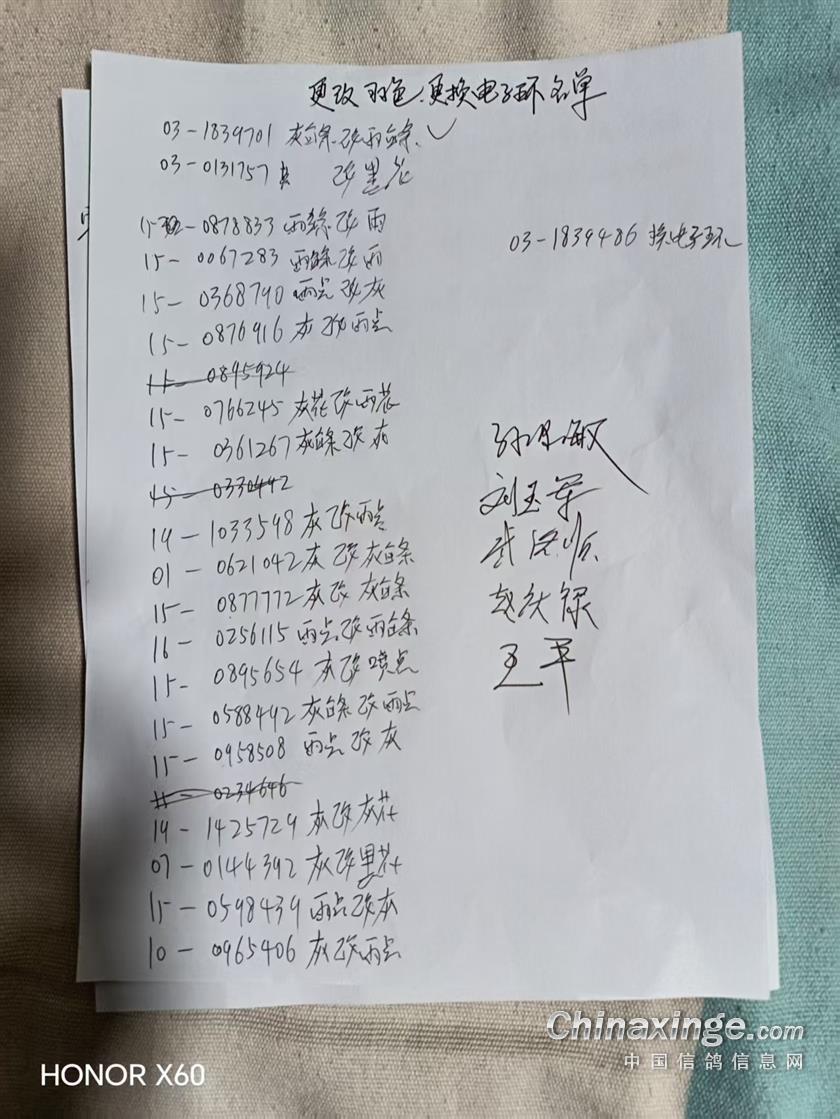 更改羽色.更换电子环名单
03-1839701 灰白条改雨白条.✓
03-0131757 改黑花
0878833 改雨
03-1839486 换电子环
15-0067283 雨白条改雨
15-0368790 雨点改灰
15-0876916 灰改雨点
15-0895924
15-0766245 灰花改雨花
15-0361267 灰白条改灰
15-0330442
19-1033598 灰改雨点
01-0621042 灰改灰白条
15-0877772 灰改灰白条
16-0256115 雨点改雨白条
15-0895654 灰改喷点
15-0588492 灰白条改雨点
15-0958508 雨点改灰
0234646
19-1425729 灰改灰花
07-0144392 灰改黑花
15-0598439 雨点改灰
10-0965406 灰改雨点
刘玉军
武
赵庆禄
王军
Chinaxinge.com
中国信鸽信息网
HONOR X60